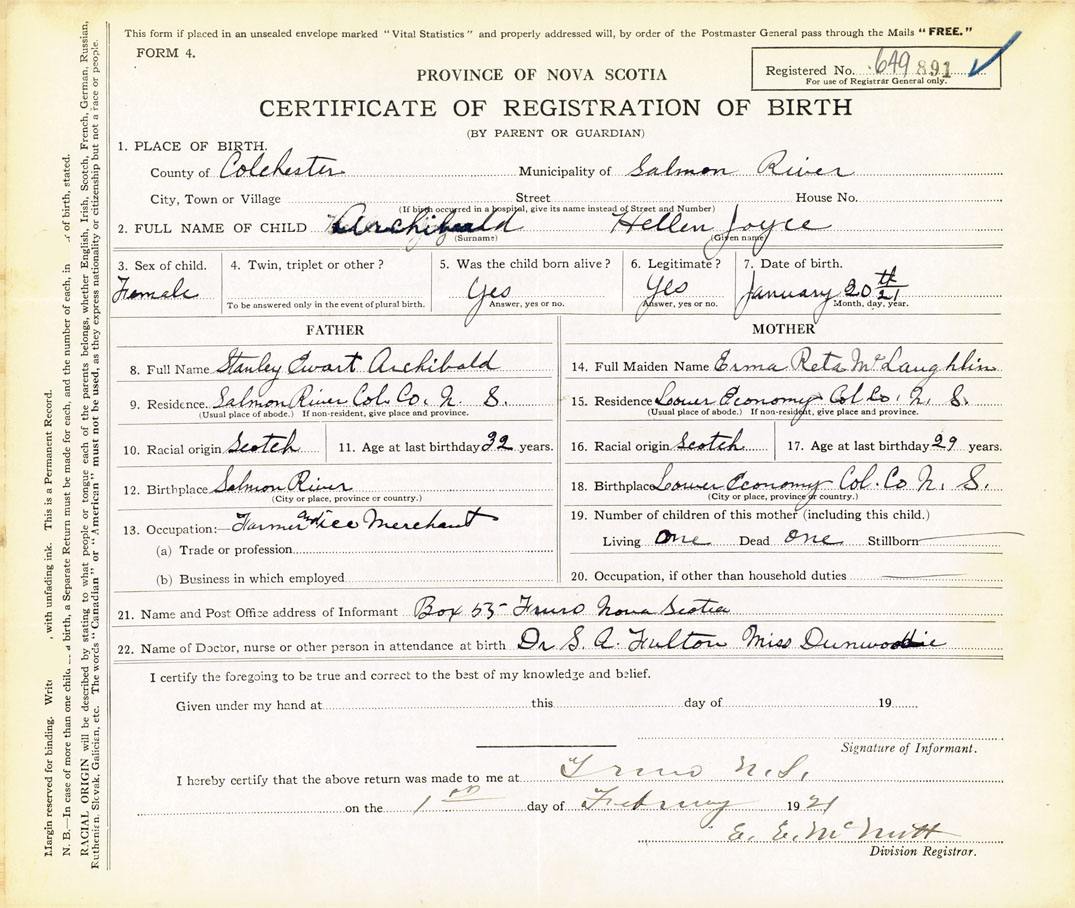 This form if placed in an unsealed envelope marked "Vital Statistics" and properly addressed will, by order of the Postmaster General pass through the Mails "FREE."
FORM 4.
Registered No. 649 891
For use of Registrar General only.
PROVINCE OF NOVA SCOTIA
CERTIFICATE OF REGISTRATION OF BIRTH
(BY PARENT OR GUARDIAN)
1. PLACE OF BIRTH.
County of Colchester Municipality of Salmon River
City, Town or Village Street House No.
(If birth occurred in a hospital, give its name instead of Street and Number)
2. FULL NAME OF CHILD Archibald Hellen Joyce
(Surname) (Given name)
3. Sex of child. 4. Twin, triplet or other? 5. Was the child born alive? 6. Legitimate? 7. Date of birth.
Female Yes Yes January 20th 21
To be answered only in the event of plural birth. Answer, yes or no. Answer, yes or no. Month, day, year.
FATHER MOTHER
8. Full Name Stanley Ewart Archibald 14. Full Maiden Name Erma Reta McLaughlin
9. Residence. Salmon River Col. Co. N. S. 15. Residence Lower Economy Col Co. N. S.
(Usual place of abode.) If non-resident, give place and province. (Usual place of abode.) If non-resident, give place and province.
10. Racial origin Scotch 11. Age at last birthday 32 years. 16. Racial origin Scotch 17. Age at last birthday 29 years.
12. Birthplace Salmon River 18. Birthplace Lower Economy Col. Co N. S.
(City or place, province or country.) (City or place, province or country.)
13. Occupation:— Farmer and ice Merchant 19. Number of children of this mother (including this child.)
(a) Trade or profession Living One Dead One Stillborn
(b) Business in which employed 20. Occupation, if other than household duties
21. Name and Post Office address of Informant Box 55 Truro Nova Scotia
22. Name of Doctor, nurse or other person in attendance at birth Dr S. A. Fulton Miss Dunwoodie
I certify the foregoing to be true and correct to the best of my knowledge and belief.
Given under my hand at this day of 19
Signature of Informant.
I hereby certify that the above return was made to me at Truro N.S.
on the 1st day of February 1921
E. E. McNutt
Division Registrar.
Margin reserved for binding. Write with unfading ink. This is a Permanent Record.
N. B.—In case of more than one child a birth, a Separate Return must be made for each, and the number of each, in of birth, stated.
RACIAL ORIGIN will be described by stating to what people or tongue each of the parents belongs, whether English, Irish, Scotch, French, German, Russian,
Ruthenian, Slovak, Galician, etc. The words "Canadian" or "American" must not be used, as they express nationality or citizenship but not a race or people.